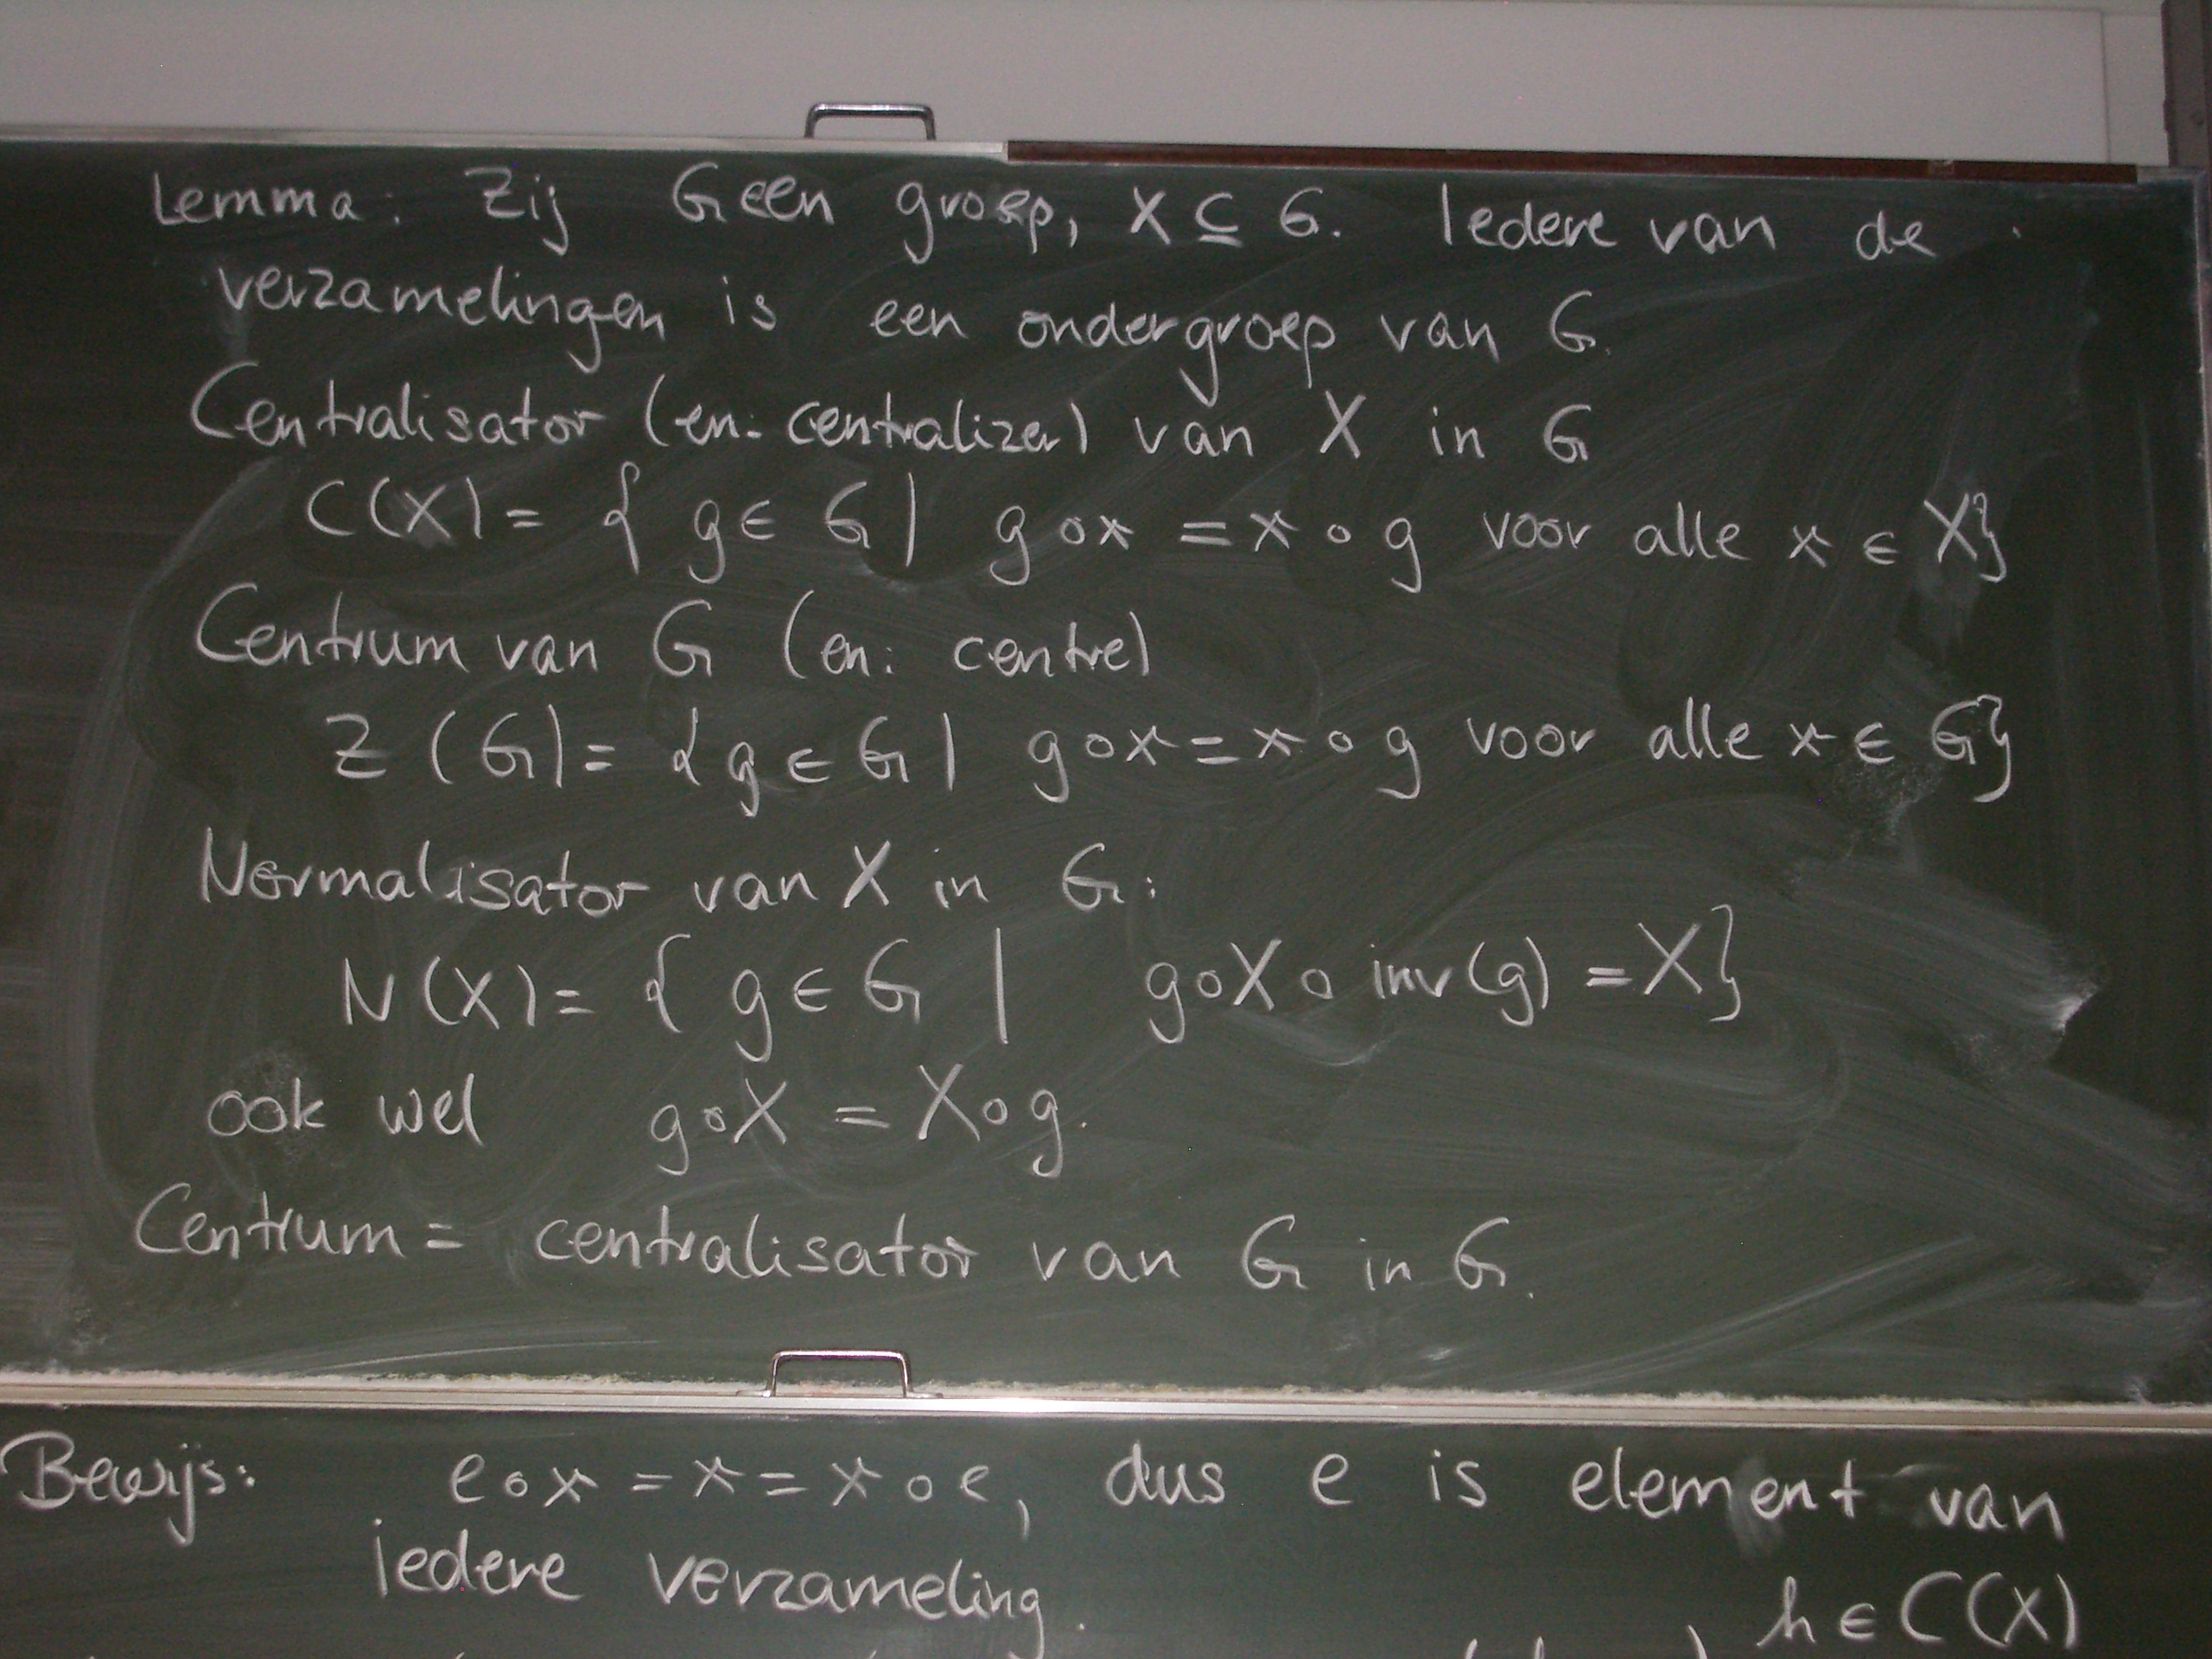 Lemma: Zij G een groep, X ⊆ G. Iedere van de
verzamelingen is een ondergroep van G.
Centralisator (en: centralizer) van X in G
C(X) = { g ∈ G | g ∘ x = x ∘ g voor alle x ∈ X}
Centrum van G (en: centre)
Z (G) = { g ∈ G | g ∘ x = x ∘ g voor alle x ∈ G}
Normalisator van X in G:
N(X) = { g ∈ G | g ∘ X ∘ inv(g) = X}
ook wel g ∘ X = X ∘ g.
Centrum = centralisator van G in G.
Bewijs: e ∘ x = x = x ∘ e, dus e is element van
iedere verzameling.
h ∈ C(X)